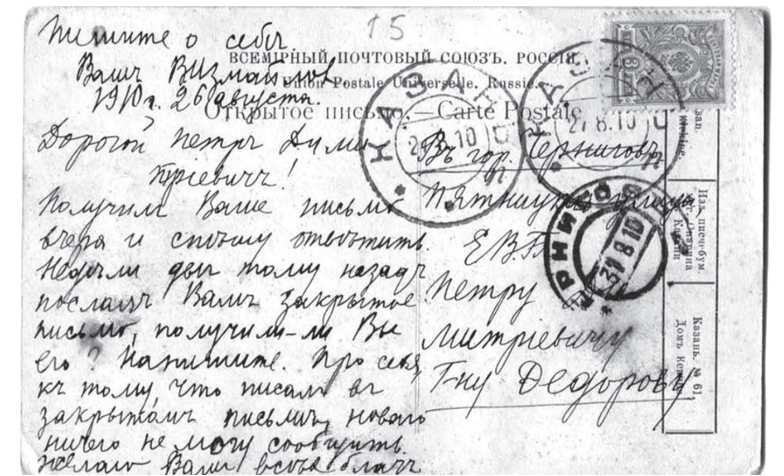 15
Пишите о себѣ
Вашъ Визмановъ.
1910 г. 26 августа.
ВСЕМІРНЫЙ ПОЧТОВЫЙ СОЮЗЪ. РОССІЯ.
Union Postale Universelle. Russie.
Открытое письмо.—Carte Postale
КАЗАНЬ
27 8.10
КАЗАНЬ
27.8.10
Дорогой Петръ Дими
тріевичъ!
Получилъ Ваше письмо
вчера и спѣшу отвѣтить.
Недѣли двѣ тому назадъ
послалъ Вамъ закрытое
письмо, получили-ли Вы
его? Напишите. Про себя
къ тому, что писалъ въ
закрытомъ письмѣ, новаго
ничего не могу сообщить.
Желаю Вамъ всѣхъ благъ
Въ гор. Черниговъ
Пятницкая улица
Е.В.Б.
Петру
Митріевичу
Г-ну Федорову
31 8 10
Изд. писчебум
Казани
Казань. № 61
Домъ